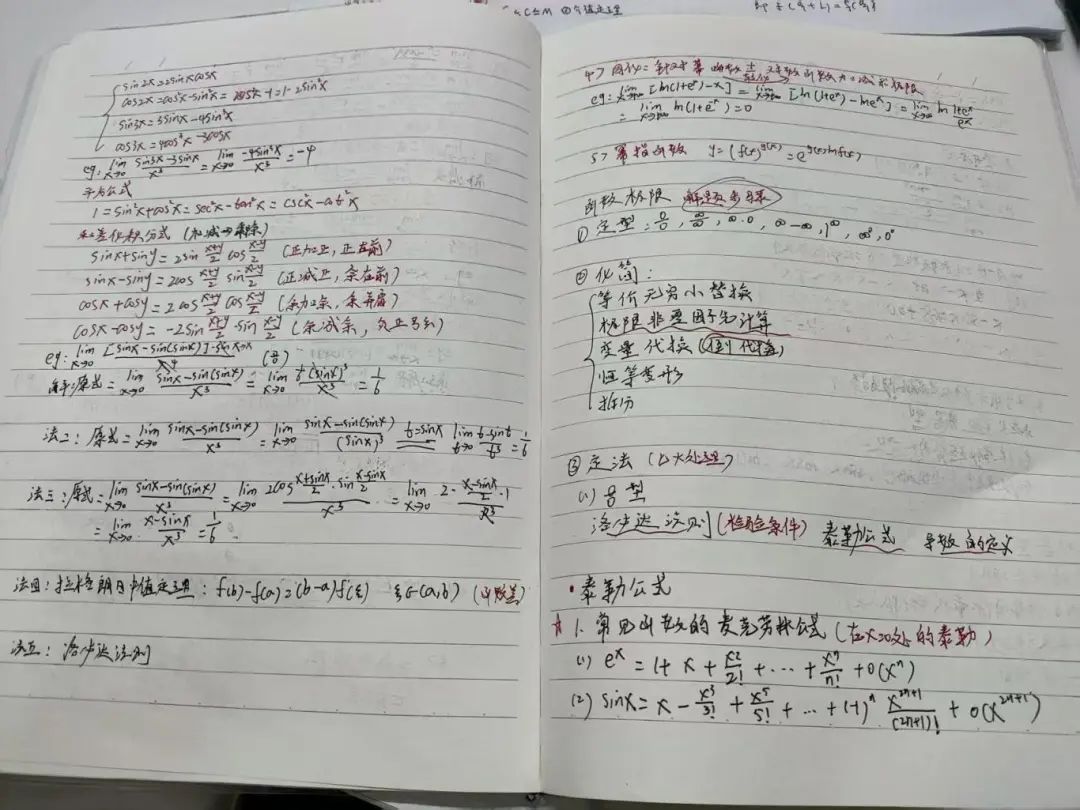 sin2x=2sinxcosx
cos2x=cos²x-sin²x=2cos²x-1=1-2sin²x
sin3x=3sinx-4sin³x
cos3x=4cos³x-3cosx
eg: lim x→0 (sin3x-3sinx)/x³ = lim x→0 (-4sin³x)/x³ = -4
平方公式
1=sin²x+cos²x=sec²x-tan²x=csc²x-cot²x
和差化积公式
sinx+siny=2sin (x+y)/2 cos (x-y)/2 (正加正,正在前)
sinx-siny=2cos (x+y)/2 sin (x-y)/2 (正减正,余在前)
cosx+cosy=2cos (x+y)/2 cos (x-y)/2 (余加余,余并肩)
cosx-cosy=-2sin (x+y)/2 · sin (x-y)/2 (余减余,负正弓)
eg: lim x→0 [sinx-sin(sinx)]·sinx / x⁴ (0/0)
解:原式= lim x→0 (sinx-sin(sinx))/x³ = lim x→0 (1/6 (sinx)³)/x³ = 1/6
法二:原式= lim x→0 (sinx-sin(sinx))/x³ = lim x→0 (sinx-sin(sinx))/(sinx)³ t=sinx lim t→0 (t-sint)/t³ = 1/6
法三:原式= lim x→0 (sinx-sin(sinx))/x³ = lim x→0 (2cos (x+sinx)/2 · sin (x-sinx)/2)/x³ = lim x→0 (2·(x-sinx)/2·1)/x³
= lim x→0 (x-sinx)/x³ = 1/6
法四:拉格朗日中值定理:f(b)-f(a)=(b-a)f'(ξ) ξ∈(a,b) (函数差)
法五:洛必达法则
eg: lim x→+∞ [ln(1+eˣ)-x] = lim x→+∞ [ln(1+eˣ)-lneˣ] = lim x→+∞ ln (1+eˣ)/eˣ
= lim x→+∞ ln(1+e⁻ˣ)=0
5> 幂指函数 y=(f(x))^g(x)=e^(g(x)lnf(x))
函数极限 解题步骤
① 定型:0/0, ∞/∞, ∞·0, ∞-∞, 1^∞, ∞⁰, 0⁰
② 化简:
等价无穷小替换
极限非零因子先计算
变量代换(倒代换)
恒等变形
拆分
③ 定法(七大处理)
(1) 0/0 型
洛必达法则(检验条件) 泰勒公式 导数的定义
·泰勒公式
☆ 1. 常见函数的麦克劳林公式(在x=0处的泰勒)
(1) eˣ=1+x+x²/2!+…+xⁿ/n!+o(xⁿ)
(2) sinx=x-x³/3!+x⁵/5!+…+(-1)ⁿ x²ⁿ⁺¹/(2n+1)!+o(x²ⁿ⁺¹)